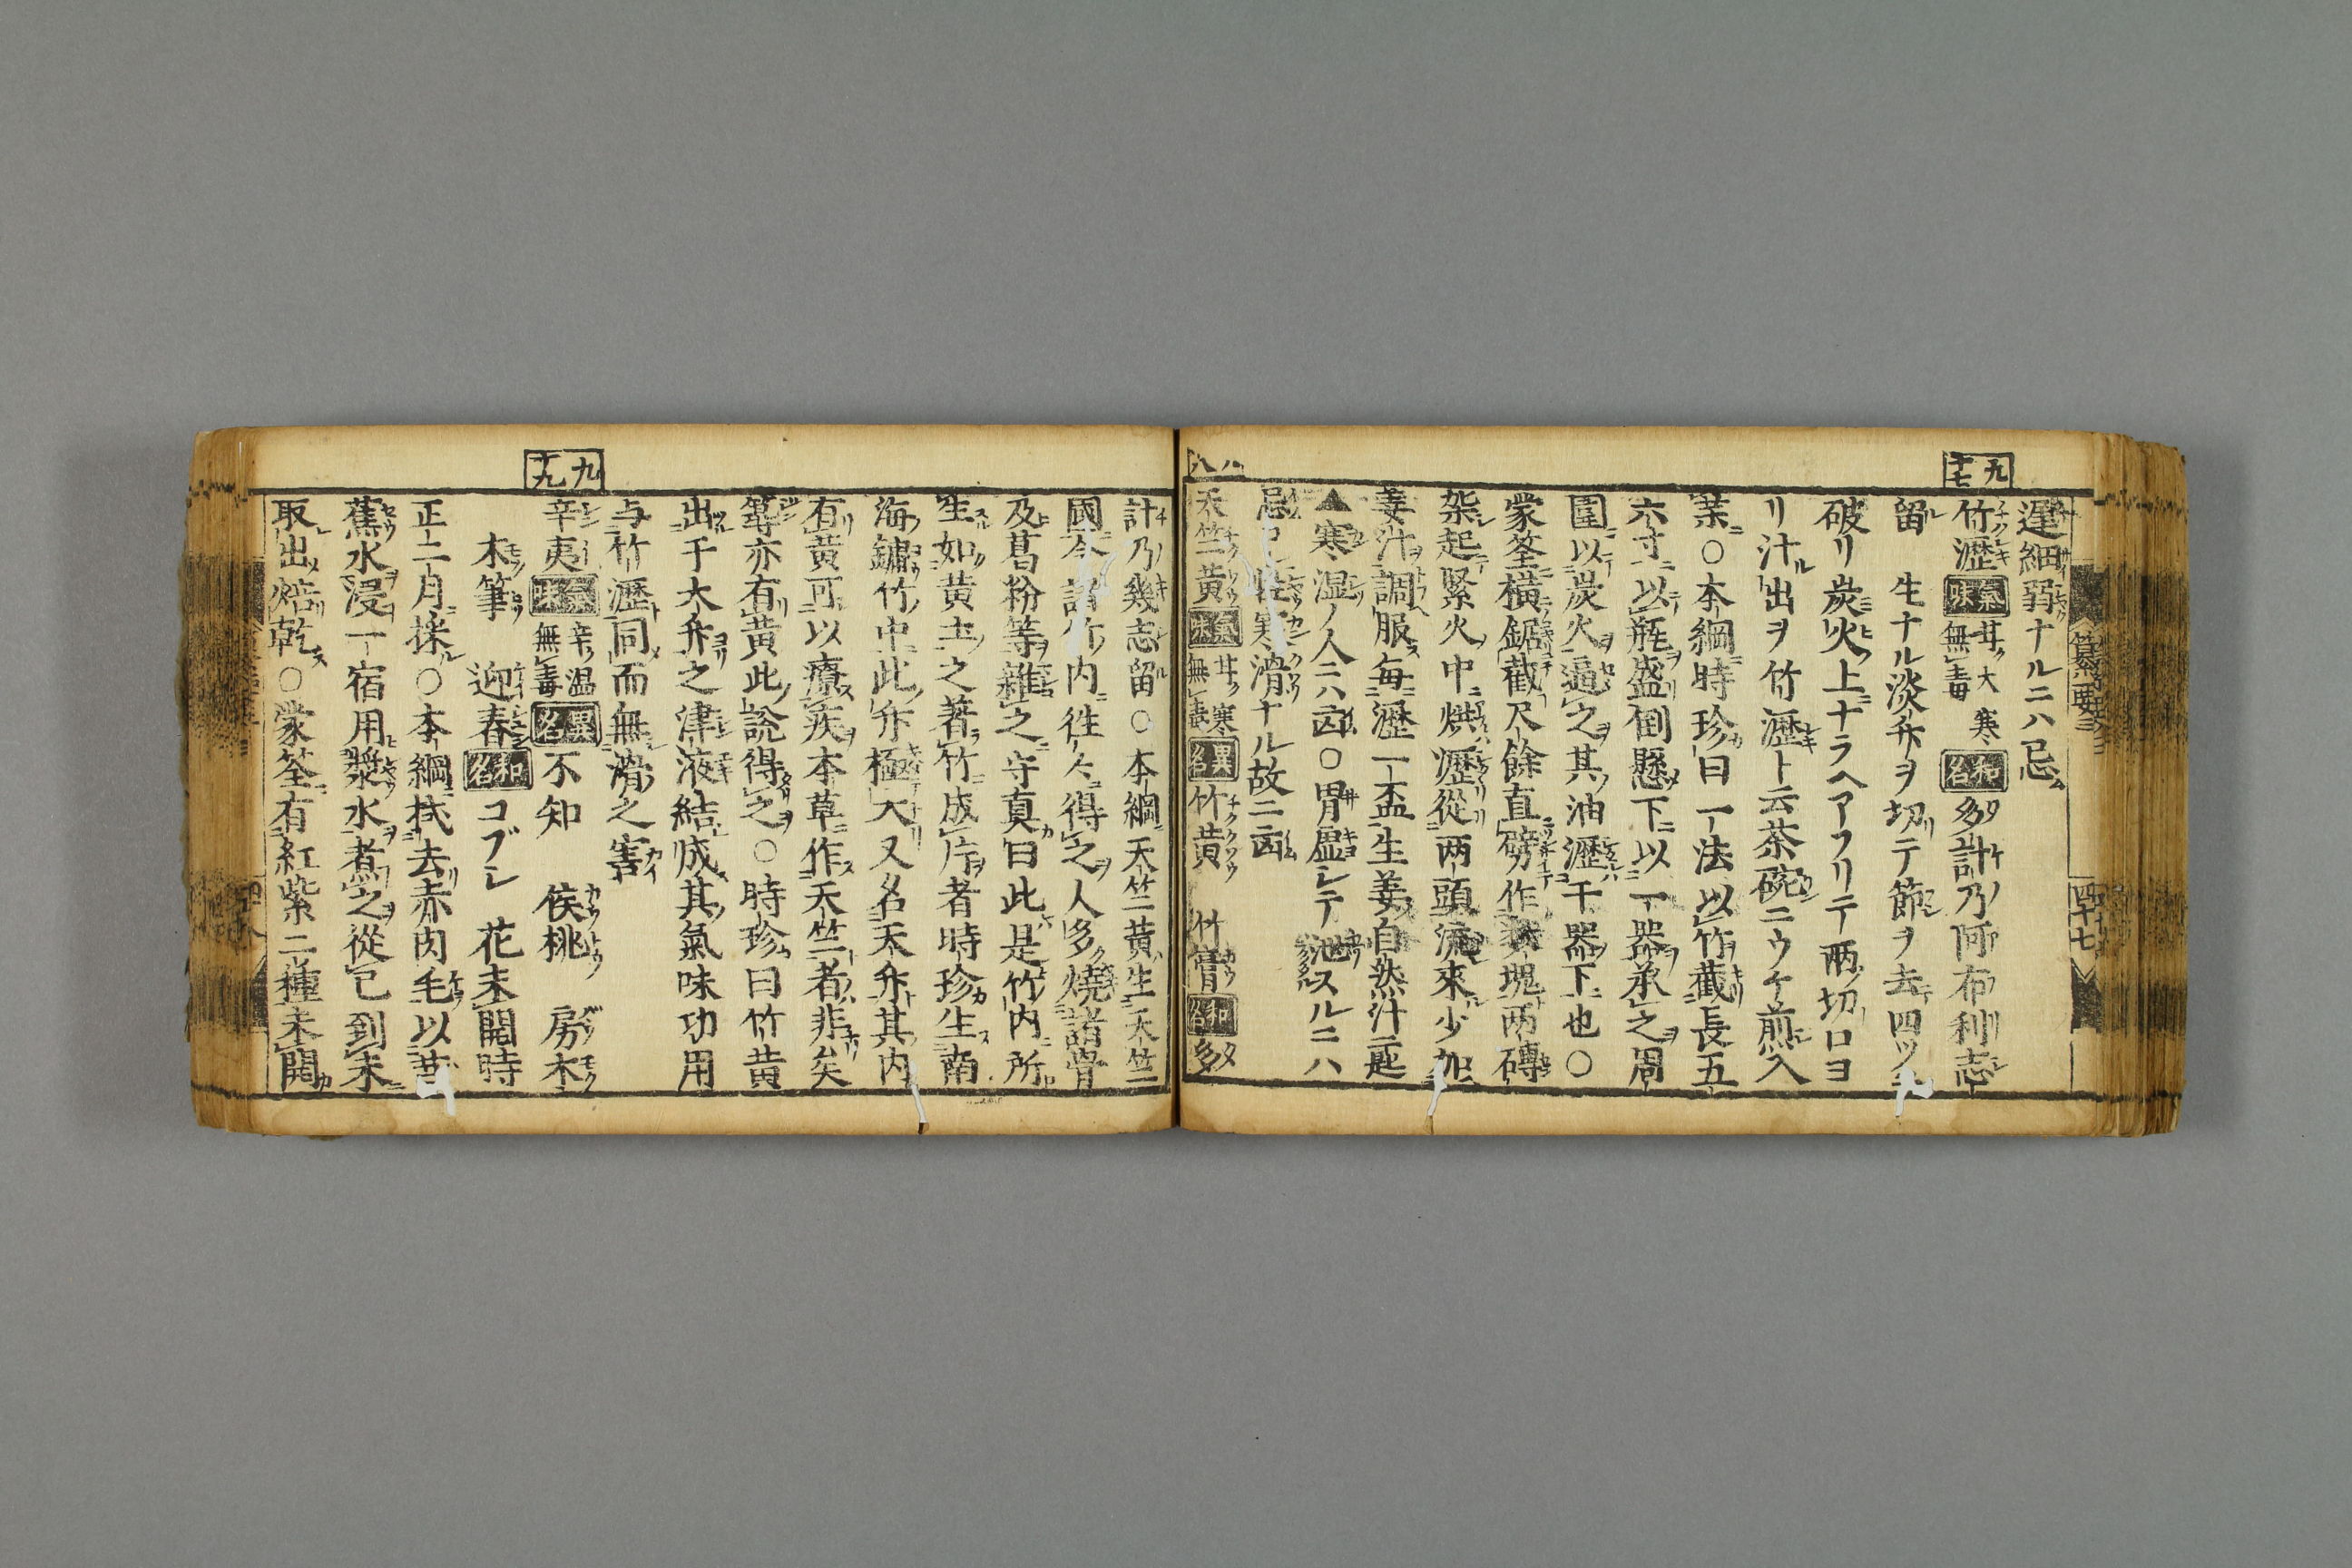 九十七
遲細弱ナルニハ忌
竹瀝 氣味 甘大寒無毒 和名 多計乃阿布利志
留 生ナル淡竹ヲ切テ節ヲ去四ツニ
破リ炭火ノ上ニナラヘアフリテ兩ノ切口ヨ
リ汁出ヲ竹瀝ト云茶碗ニウケ煎入
薬○本綱時珍曰一法以竹截長五
六寸以瓶盛倒懸下以一器承之周
圍以炭火逼之其油瀝于器下也○
蒙筌橫鋸截尺餘直劈作數塊兩磚
架起緊火中烘瀝從兩頭流來少加
姜汁調服每瀝一盃生姜自然汁二匙
▲寒湿ノ人ニハ凶○胃虛シテ泄スルニハ
忌 性寒滑ナル故ニ凶
天竺黄 氣味 甘寒無毒 異名 竹黄 竹膏 和名 多
計乃幾志留○本綱天竺黄生天竺
國今諸竹内往〻得之人多燒諸骨
及葛粉等雜之守真曰此是竹内所
生如黄土之著竹成片者時珍生南
海鏞竹中此竹極大又名天竹其内
有黄可以療疾本草作天竺者非矣
等亦有黄此說得之○時珍曰竹黄
出于大竹之津液結成其氣味功用
与竹瀝同而無滑之害
九十九
辛夷 氣味 辛温無毒 異名 不知 侯桃 房木
木筆 迎春 和名 コブシ 花未開時
正二月採○本綱拭去赤肉毛以芭
蕉水浸一宿用漿水煮之從巳到未
取出焙乾○蒙筌有紅紫二種未開